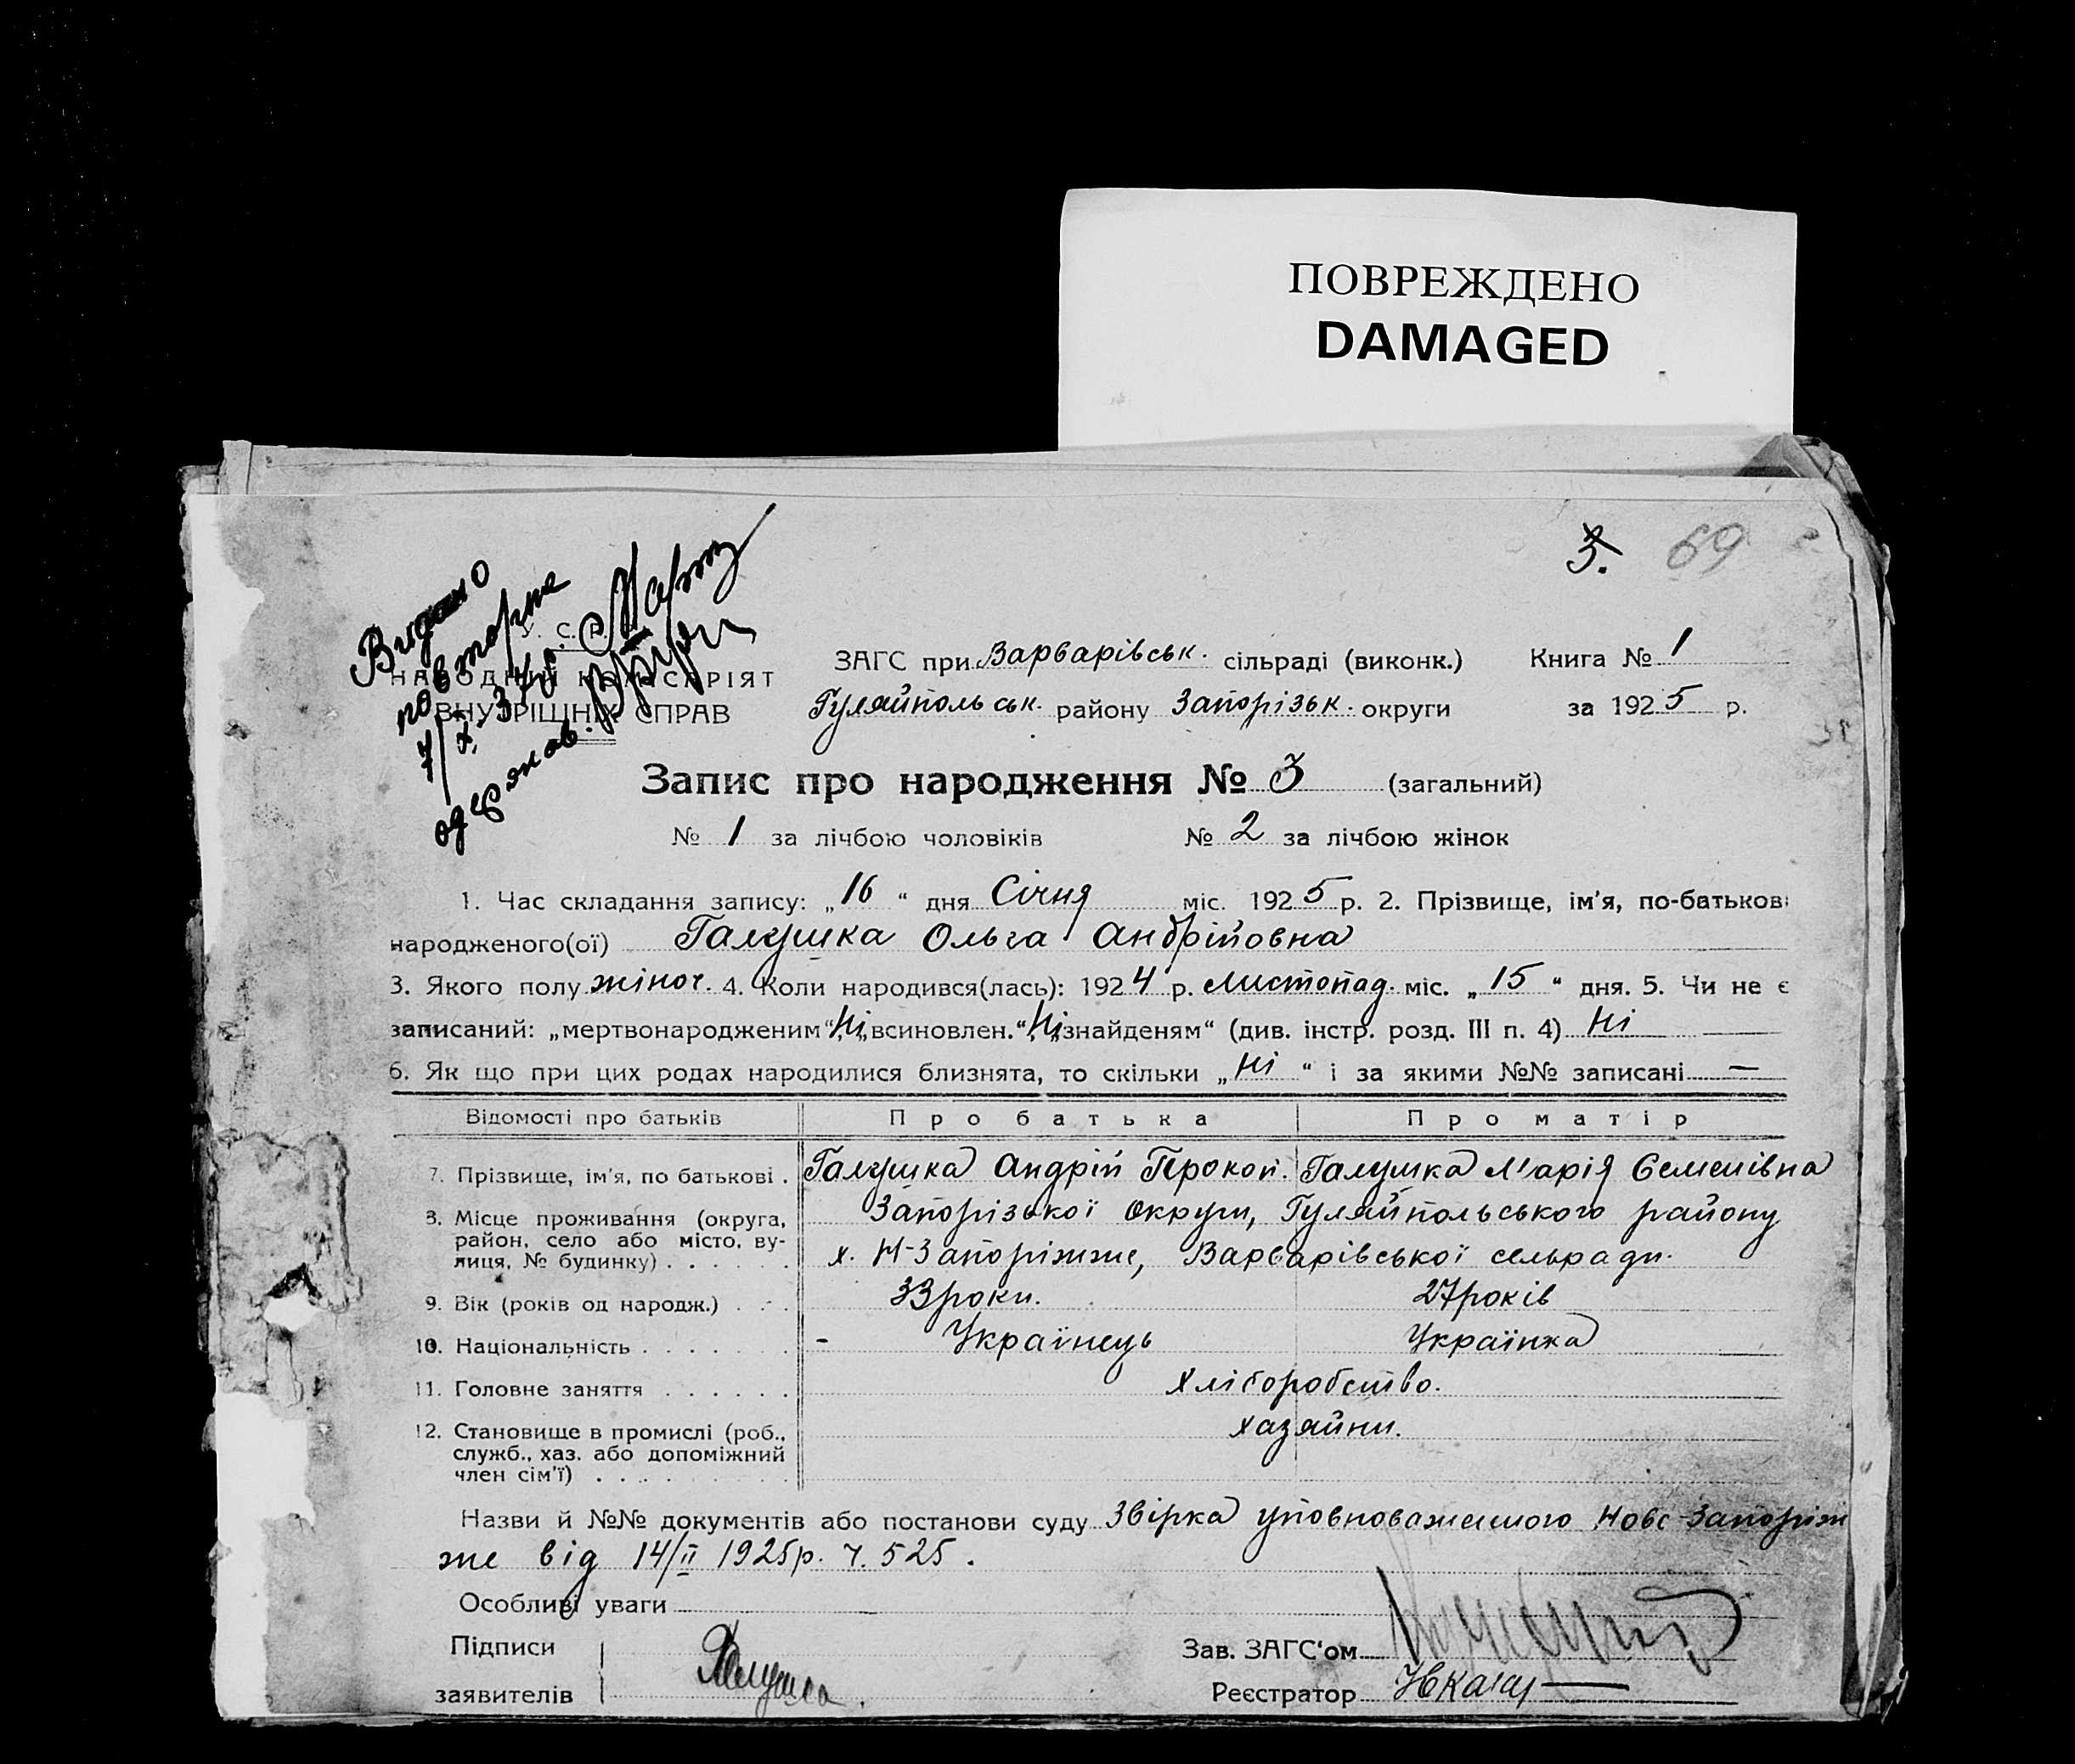 ПОВРЕЖДЕНО
DAMAGED
3. 69
Видано
повторне
7/X
У. С. Р. Р.
НАРОДНІЙ КОМІСАРІЯТ
ВНУТРІШНІХ СПРАВ
ЗАГС при Варварівськ. сільраді (виконк.) Книга № 1
Гуляйпольськ. району Запорізьк. округи за 1925 р.
Запис про народження № 3 (загальний)
№ 1 за лічбою чоловіків № 2 за лічбою жінок
1. Час складання запису: „16“ дня Січня міс. 1925 р. 2. Прізвище, ім'я, по-батькові
народженого(ої) Галушка Ольга Андрійовна
3. Якого полу жіноч. 4. Коли народився(лась): 1924 р. листопад. міс. „15“ дня. 5. Чи не є
записаний: „мертвонародженим“ Ні, „всиновлен.“ Ні, „знайденям“ (див. інстр. розд. III п. 4) Ні
6. Як що при цих родах народилися близнята, то скільки „Ні“ і за якими №№ записані —
Відомості про батьків Про батька Про матір
7. Прізвище, ім'я, по батькові . Галушка Андрій Прокоп. Галушка Марія Семенівна
8. Місце проживання (округа, Запорізької округи, Гуляйпольського району
район, село або місто, ву-
лиця, № будинку) . . . . . . х. Н-Запоріжже, Варварівської сельради.
9. Вік (років од народж.) . . . 33 роки. 27 років
10. Національність . . . . . . . - Українець Українка
11. Головне заняття . . . . . . Хліборобство.
12. Становище в промислі (роб., хазяйни.
служб., хаз. або допоміжний
член сім'ї) . . . . . . . . .
Назви й №№ документів або постанови суду Звірка уповноваженного Ново-Запоріж
же від 14/II 1925 р. ч. 525.
Особливі уваги
Підписи Зав. ЗАГС'ом
заявителів Галушка Реєстратор